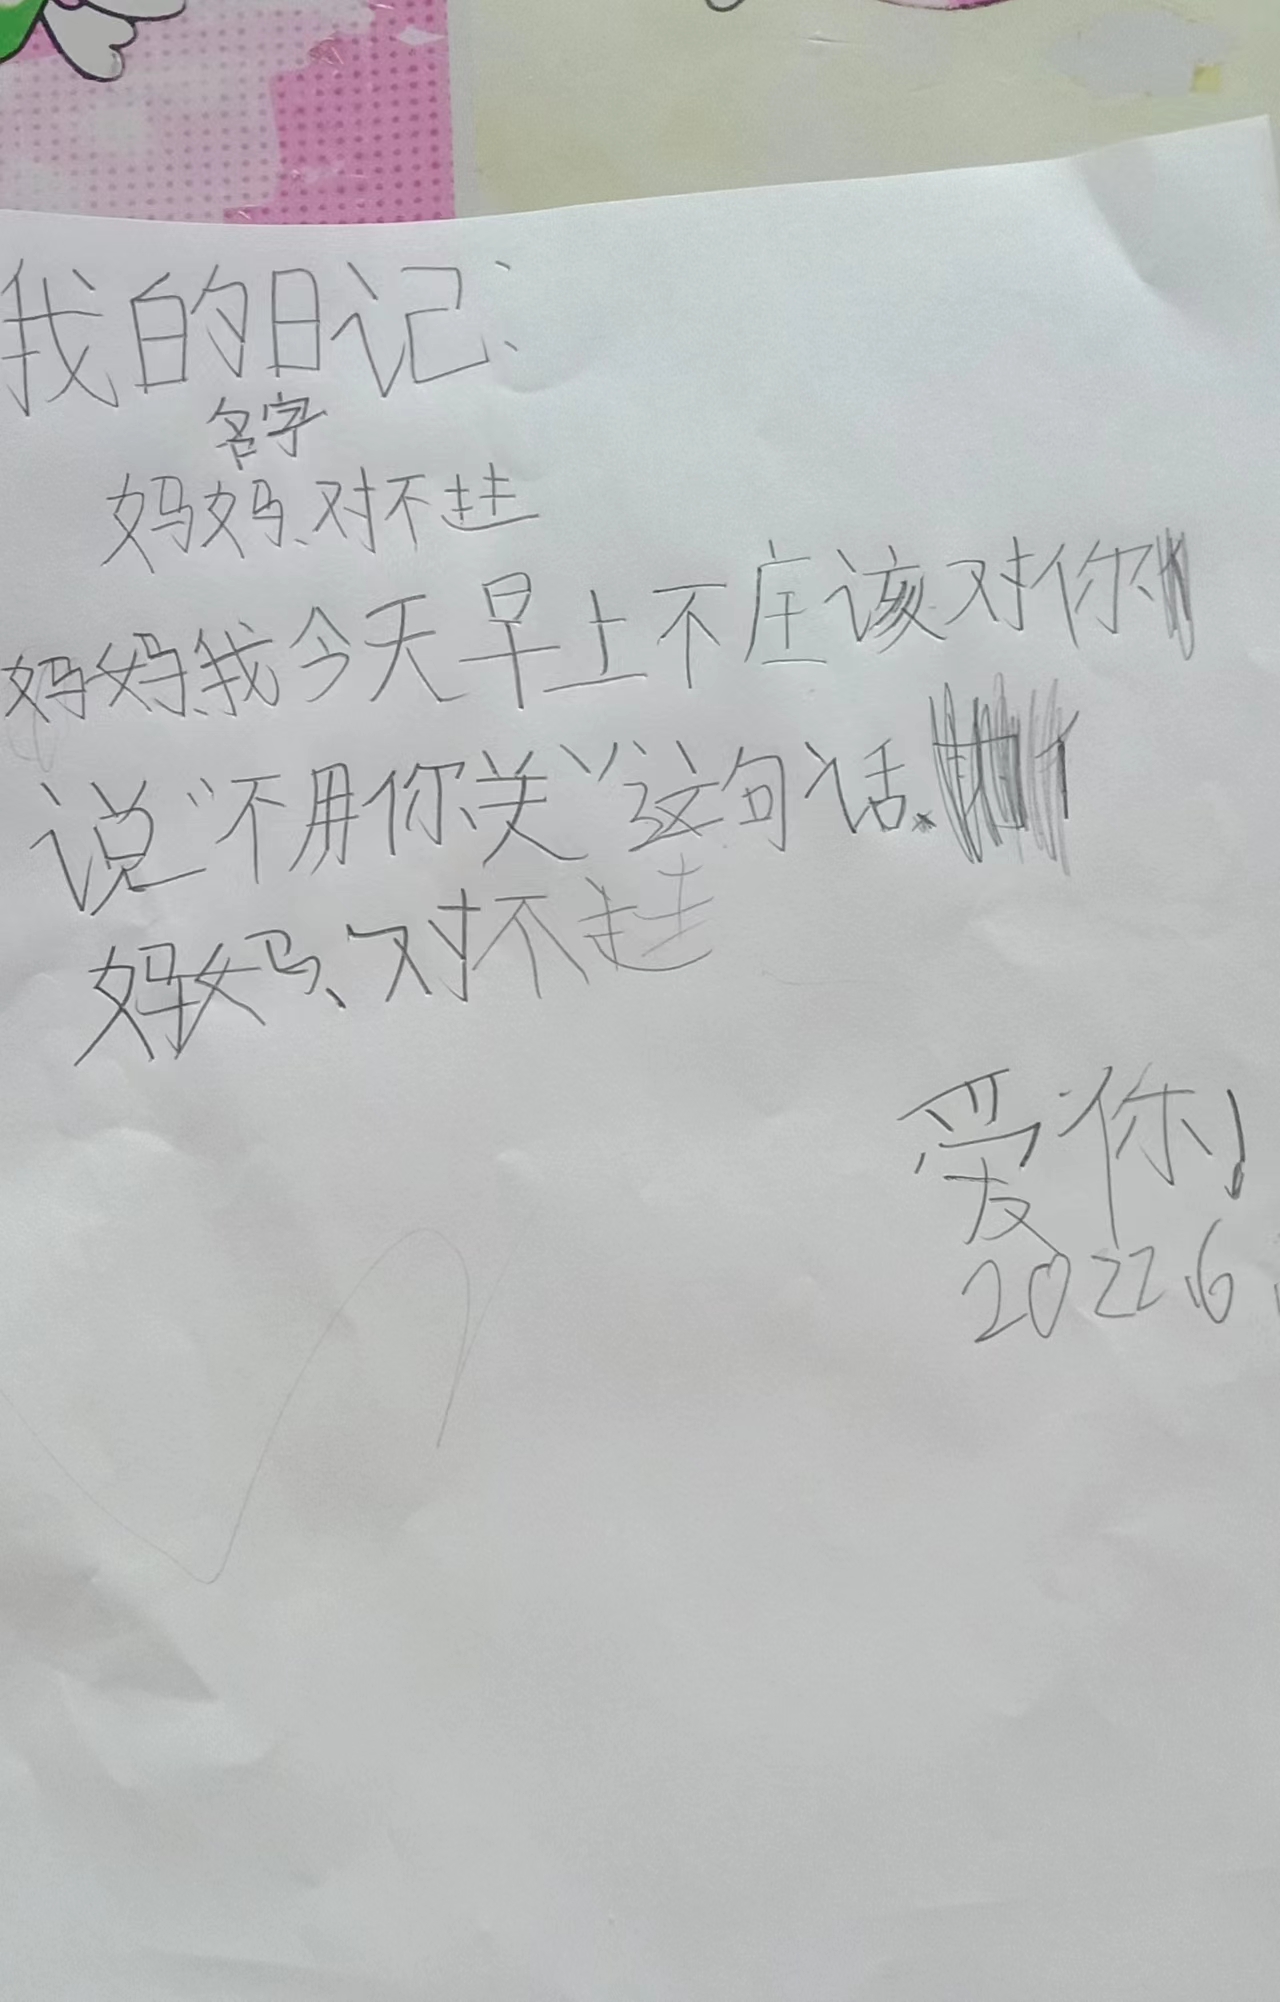 我的日记:
名字
妈妈、对不起
妈妈、我今天早上不应该对你
说“不用你关”这句话.
妈妈、对不起
爱你!
2022.6.